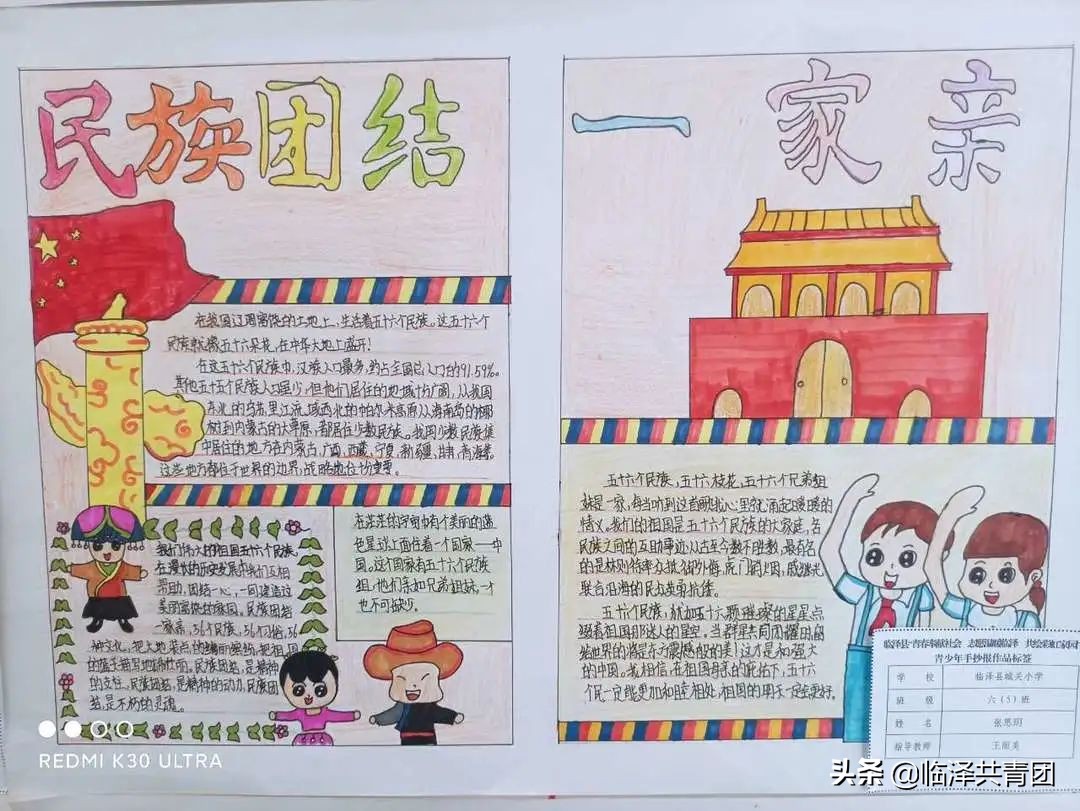 民族团结
一家亲
在我国辽阔富饶的土地上,生活着五十六个民族。这五十六个
民族就像五十六朵花,在中华大地上盛开!
在这五十六个民族中,汉族人口最多,约占全国总人口的91.59%。
其他五十五个民族人口虽少,但他们居住的地域十分广阔,从我国
东北的乌苏里江流域西北的中的尔米高原从海南岛的椰
树到内蒙古的大草原,都居住少数民族。我国少数民族集
中居住的地方在内蒙古,广西,西藏,宁夏,新疆,甘肃,青海等
这些地方都位于世界的边界,战略地位十分重要。
我们伟大的祖国五十六个民族,
在漫长的历史发展中我们互相
帮助,团结一心,一同建造这
美丽富饶的家园,民族团结
一家亲,56个民族,56个习俗,56
种文化,把大地装点的
的蓝天描写地
的支柱。民族团结,是精神的动力,民族团
结是不朽的灵魂。
在茫茫的宇宙中有个美丽的蓝
色星球上面住着一个国家——中
国,这个国家有五十六个民族
组,他们亲如兄弟姐妹,一个
也不可缺少。
五十六个民族,五十六枝花,五十六个兄弟姐
妹是一家,每当听到这首歌我心里就涌起暖暖的
情义,我们的祖国是五十六个民族的大家庭,各
民族之间的互助事迹从古至今数不胜数,最有名
的是林则徐率众抵御外侮,虎门销烟,戚继光
联合沿海的民众英勇抗倭。
五十六个民族,就如五十六颗璀璨的星星点
缀着祖国那迷人的星空,当群星共同闪耀时,
世界的将是
的中国。我相信,在祖国母亲的庇佑下,五十六
个民一定能更加和睦相处,祖国的明天一定会更好。
青少年手抄报作品标签
学 校 临泽县城关小学
班 级 六(5)班
姓 名 张思玥
指导教师 王丽美
REDMI K30 ULTRA
头条 @临泽共青团